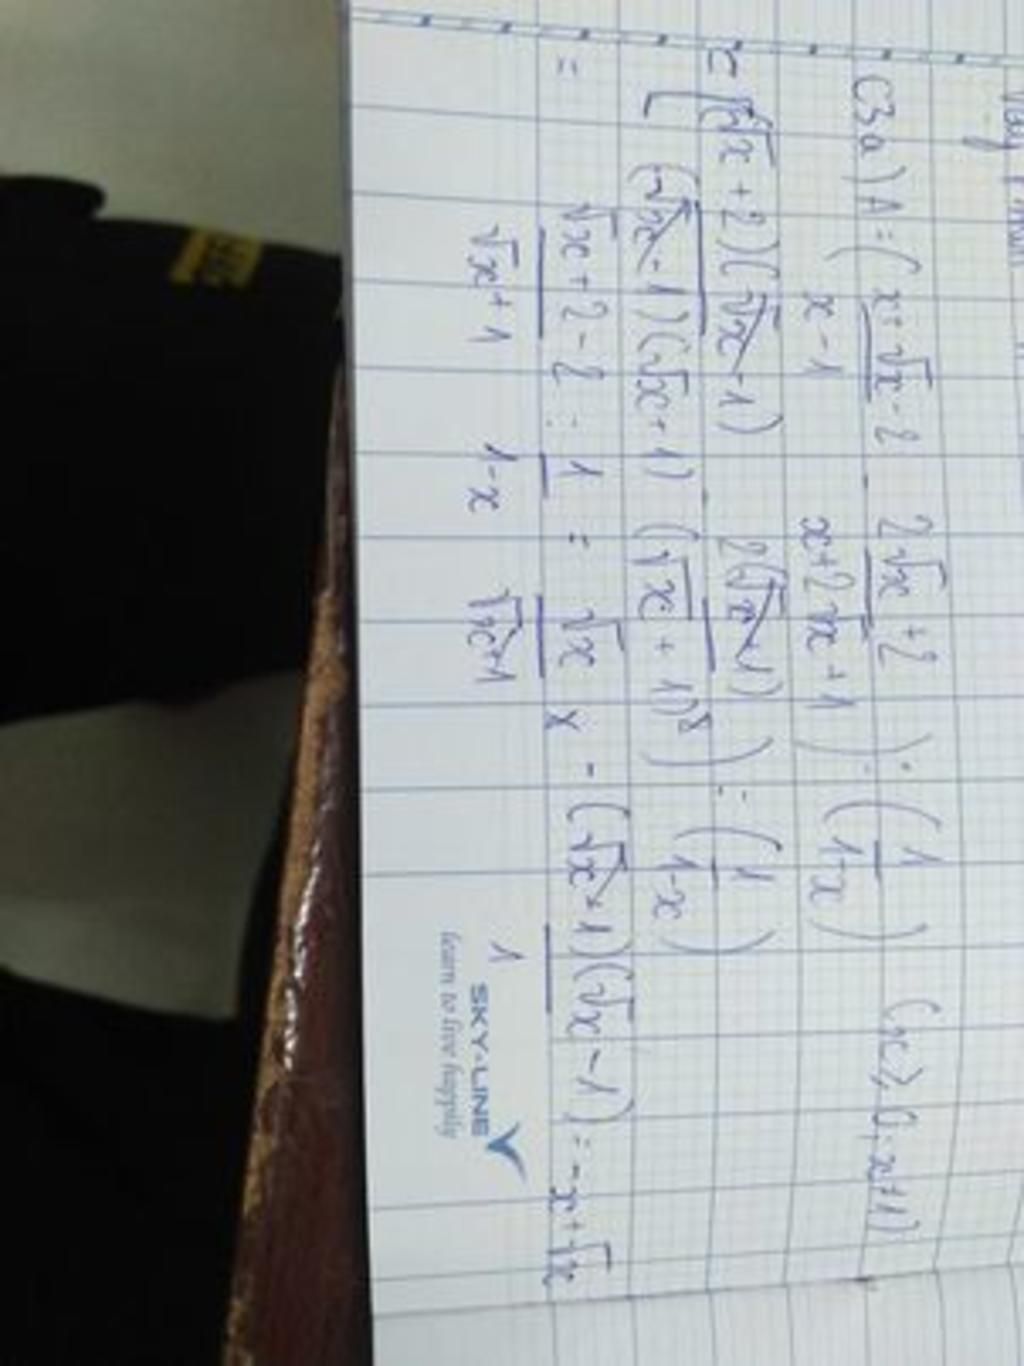 C3a) A = ( x + √x - 2 / x - 1 - 2√x + 2 / x + 2√x + 1 ) : ( 1 / 1 - x ) (x ≥ 0, x ≠ 1)
= [ (√x + 2)(√x - 1) / (√x - 1)(√x + 1) - 2(√x + 1) / (√x + 1)² ) : ( 1 / 1 - x )
= √x + 2 - 2 / √x + 1 : 1 / 1 - x = √x / √x + 1 x - (√x + 1)(√x - 1) / 1 = -x + √x
SKY-LINE
learn to live happily